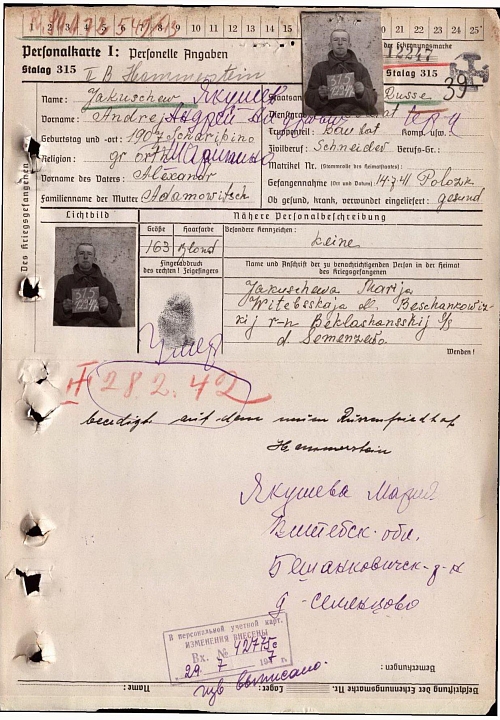 1 2 3 4 5 6 7 8 9 10 11 12 13 14 20 21 22 23 24 25
Personalkarte I: Personelle Angaben
der Erkennungsmarke
Stalag 315 II B Hammerstein
12247
Stalag 315
39
Des Kriegsgefangenen
Name: Jakuschew Якушев
Staatsan Russe
Vorname: Andrej Андрей
Dienstgrad
Geburtstag und -ort: 1907
Truppenteil: Bau bat Komp. usw.:
Religion: gr orth
Zivilberuf: Schneider Berufs-Gr.:
Matrikel Nr. (Stammrolle des Heimatstaates):
Vorname des Vaters: Alexandr
Gefangennahme (Ort und Datum): 14.7.41 Polozk
Familienname der Mutter: Adamowitsch
Ob gesund, krank, verwundet eingeliefert: gesund
Lichtbild
Nähere Personalbeschreibung
Größe Haarfarbe Besondere Kennzeichen:
163 Blond keine
Fingerabdruck
des rechten! Zeigefingers
Name und Anschrift der zu benachrichtigenden Person in der Heimat
des Kriegsgefangenen
315
Jakuschewa Marija
Witebsskaja o. Beschankowiz
kij r-n
d. Semenzewo
Умер
Wenden!
28.2.42
beerdigt auf dem neuen Russenfriedhof
Hammerstein
Якушева Мария
Витебск. обл.
Бешанкович. р-н
д. Семенцово
В персональной учетной карт.
ИЗМЕНЕНИЯ ВНЕСЕНЫ
Вх. № 4277
29. 7 г.
выписано.
Bemerkungen:
Beschriftung der Erkennungsmarke Nr.
Lager:
Name: